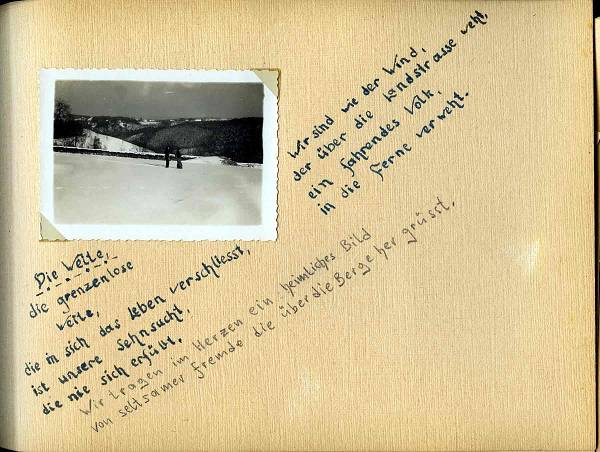 Wir sind wie der Wind,
der über die Landstrasse weht,
ein fahrendes Volk,
in die Ferne verweht.
Die Weite,
die grenzenlose
Weite,
die in sich das Leben verschliesst,
ist unsere Sehnsucht,
die nie sich erfüllt.
Wir tragen im Herzen ein heimliches Bild
von seltsamer Fremde die über die Berge her grüsst.